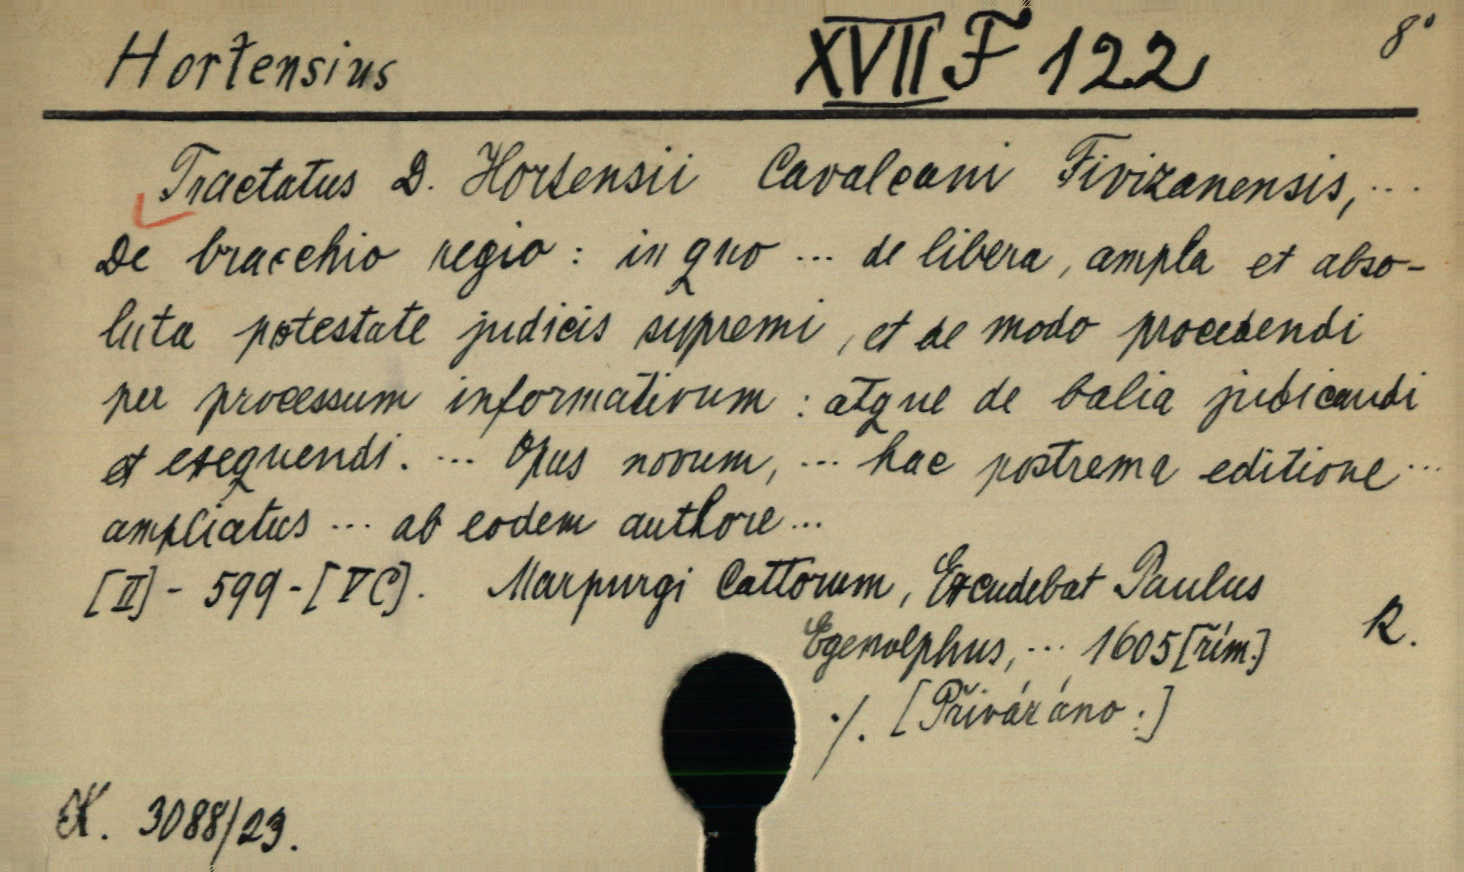 Hortensius XVII F 122 8°
Tractatus D. Hortensii Cavalcani Fivizanensis, ...
De bracchio regio : in quo ... de libera, ampla et abso-
luta potestate judicis supremi, et de modo procedendi
per processum informativum : atque de balia judicandi
et exequendi. ... Opus novum, ... hac postrema editione ...
ampliatus ... ab eodem authore ...
[II] - 599 - [VC]. Marpurgi Cattorum, Excudebat Paulus
Egenolphus, ... 1605 [řím.] R.
./. [Přivázáno :]
K. 3088/23.